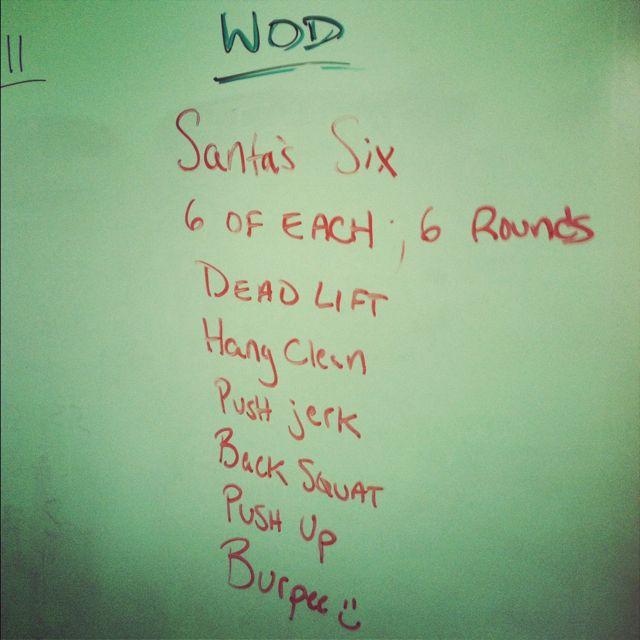 11
WOD
Santa's Six
6 OF EACH; 6 Rounds
DEAD LIFT
Hang Clean
Push jerk
Back SQUAT
Push Up
Burpee :)